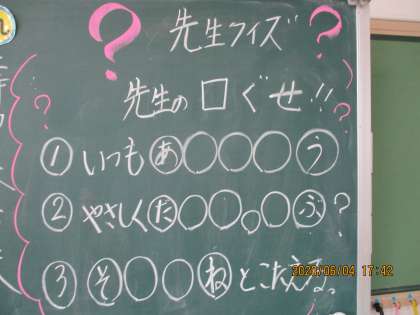 先生クイズ
先生の口ぐせ!!
① いつも あ○○○○う
② やさしく だ○○。○ぶ?
③ そ○○ね とこたえる。
2020/06/04 17:42